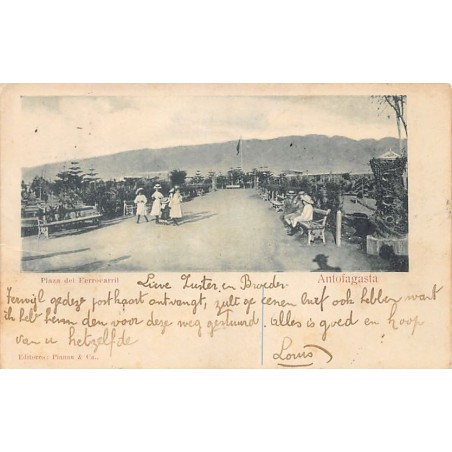 Plaza del Ferrocarril
Antofagasta
Lieve Zuster en Broeder
Terwijl gedeze postkaart ontvangt, zult ge eenen brief ook hebben want
ik heb hem den voor deze weg gestuurd. alles is goed en hoop
van u hetzelfde
Louis
Editores; Pintas & Ca.